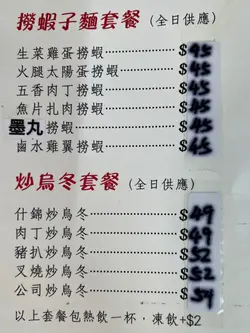 撈蝦子麵套餐 (全日供應)
生菜雞蛋撈蝦 $45
火腿太陽蛋撈蝦 $45
五香肉丁撈蝦 $45
魚片扎肉撈蝦 $45
墨丸撈蝦 $45
鹵水雞翼撈蝦 $45
炒烏冬套餐 (全日供應)
什錦炒烏冬 $49
肉丁炒烏冬 $49
豬扒炒烏冬 $52
叉燒炒烏冬 $52
公司炒烏冬
以上套餐包熱飲一杯,凍飲+$2